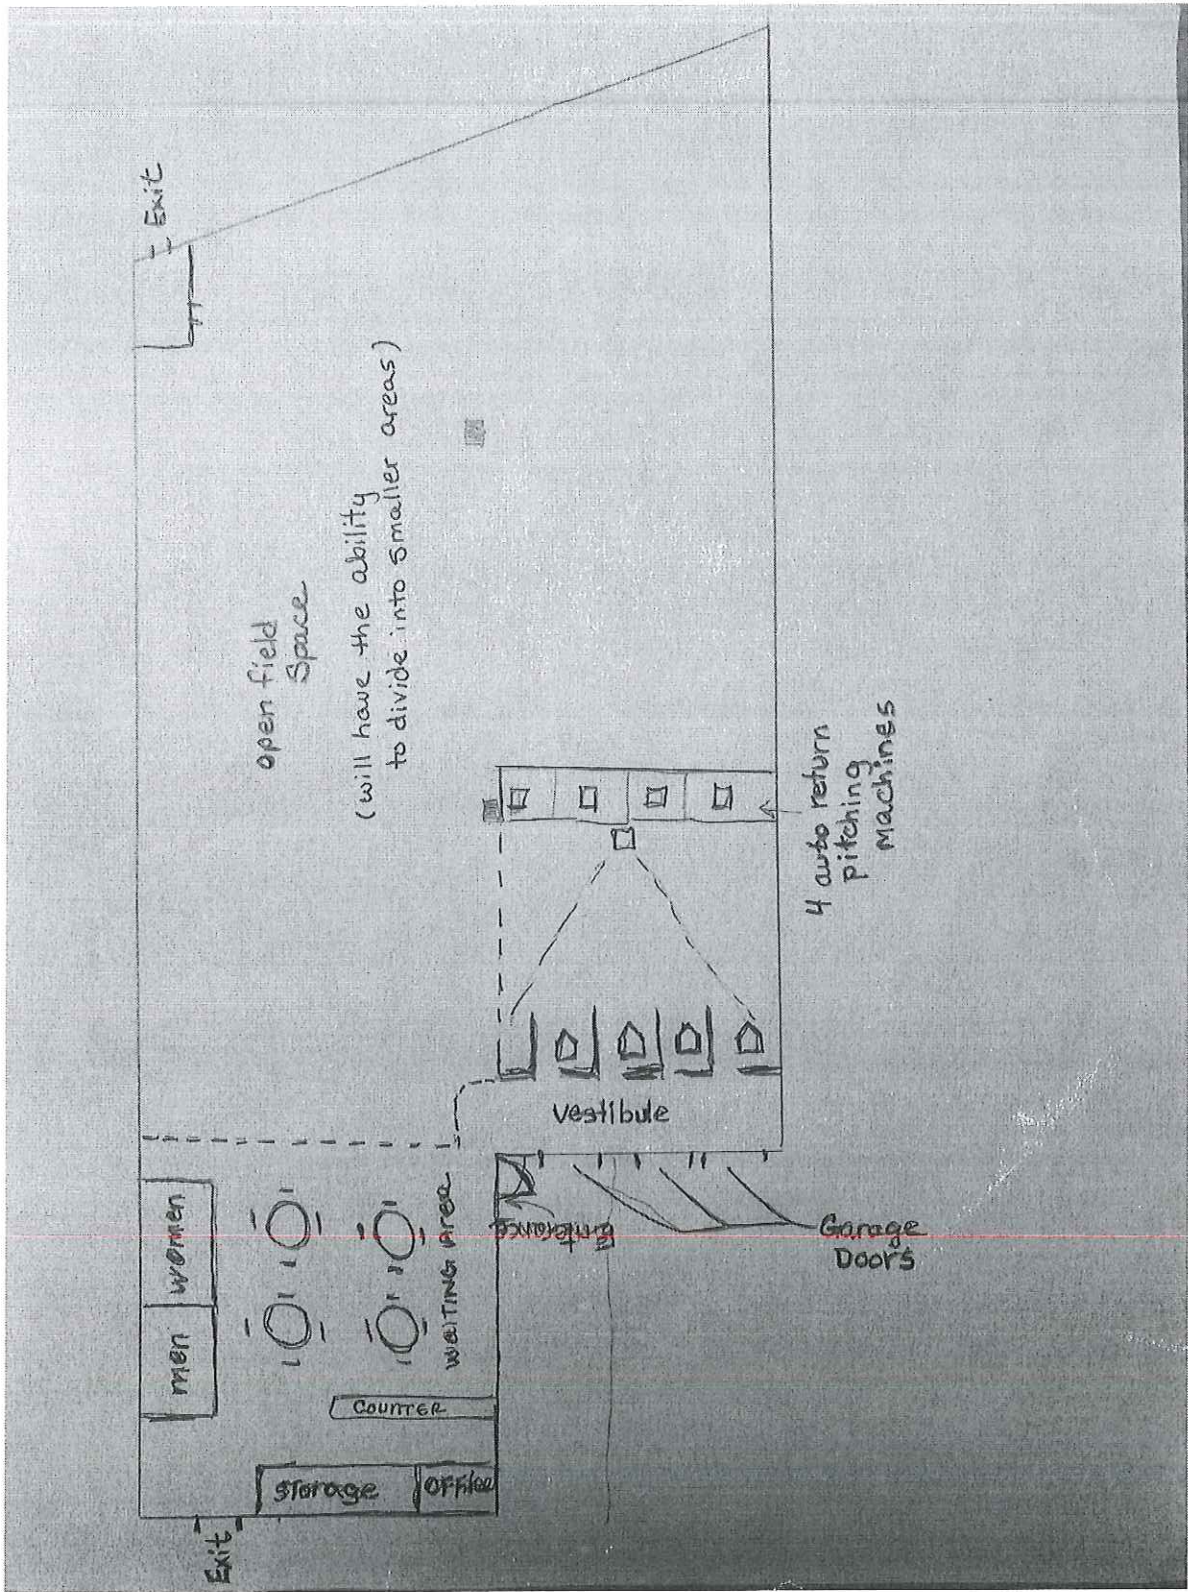 Exit
open field
Space
(will have the ability
to divide into smaller areas)
4 auto return
pitching
Machines
Vestibule
Enterance
Garage
Doors
women
men
WAITING Area
COUNTER
Storage
OFFice
Exit